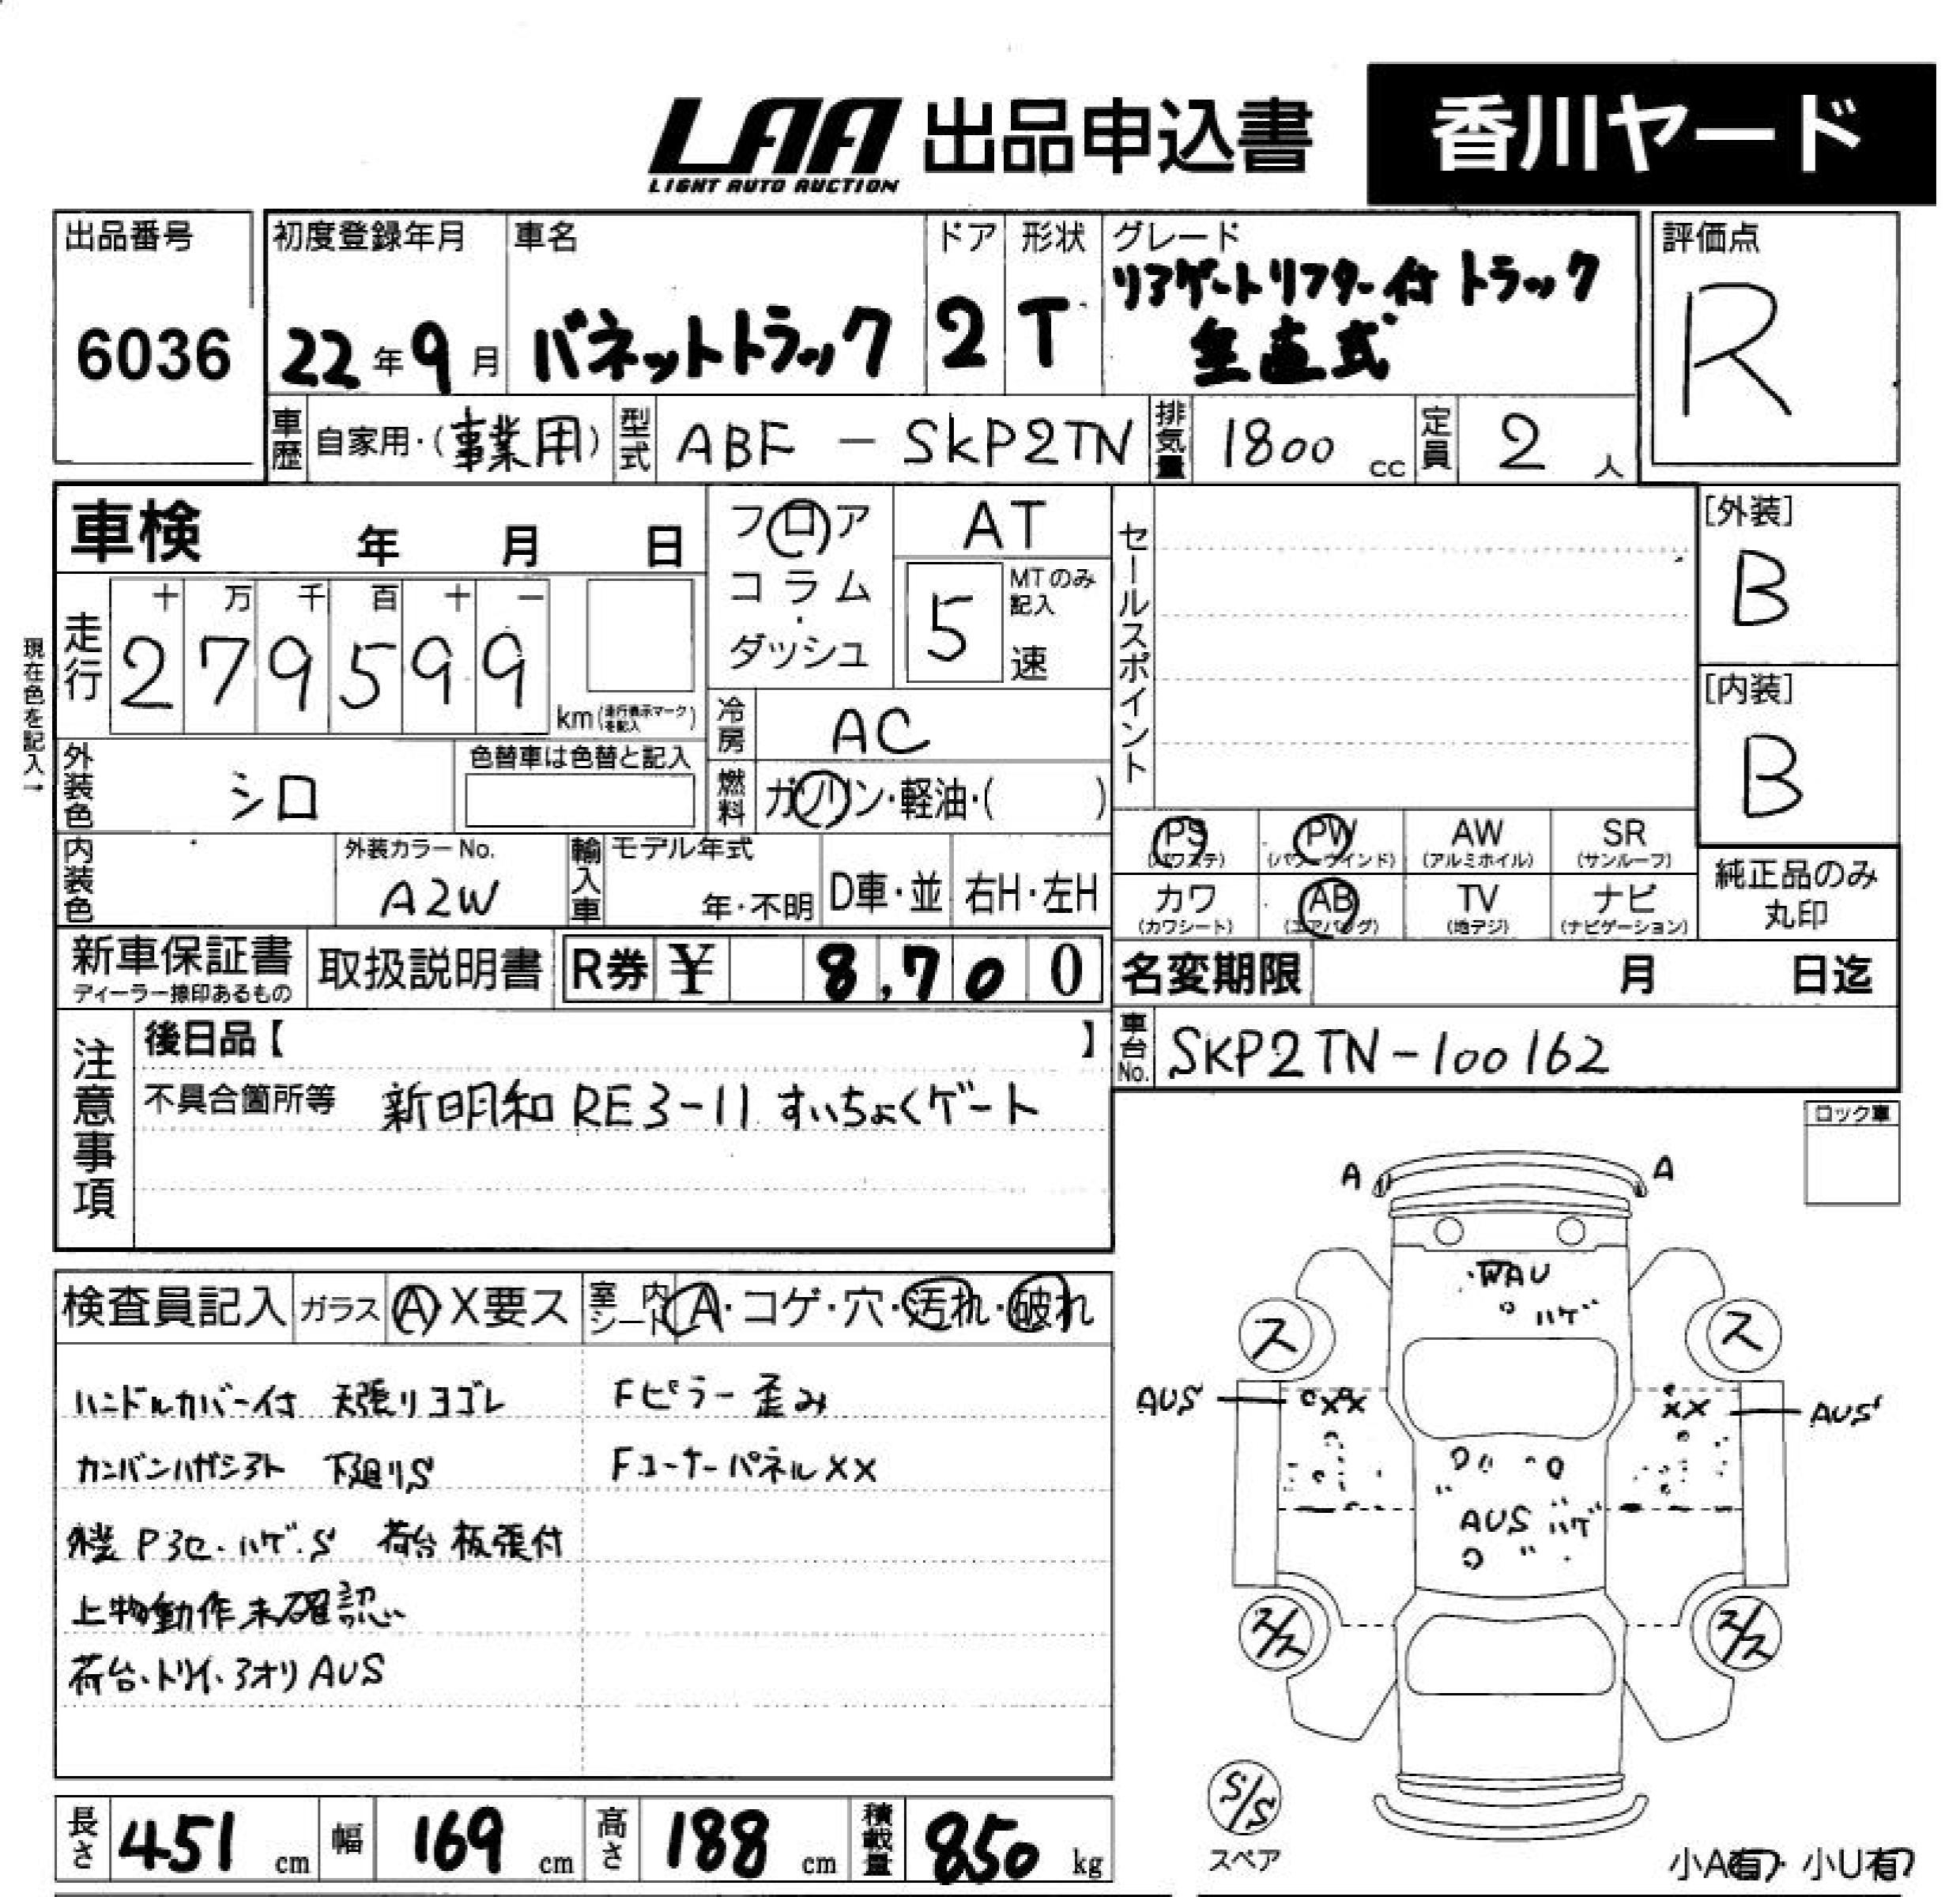 LAA 出品申込書 香川ヤード
LIGHT AUTO AUCTION
出品番号 初度登録年月 車名 ドア 形状 グレード 評価点
6036 22年9月 バネットトラック 2 T リアゲートリフター付 トラック
垂直式 R
車歴 自家用・(事業用) 型式 ABF-SKP2TN 排気量 1800 cc 定員 2 人
車検 年 月 日 フロア AT セールスポイント [外装]
コラム・ダッシュ 5 速 MTのみ記入 B
走行 十 万 千 百 十 一
2 7 9 5 9 9 km (走行表示マークを記入)
[内装]
B
現在色を記入→
冷房 AC
外装色 シロ 色替車は色替と記入 燃料 ガソリン・軽油・( )
PS (パワステ) PW (パワーウインド) AW (アルミホイル) SR (サンルーフ)
内装色 外装カラーNo. A2W 輸入車 モデル年式 年・不明 D車・並 右H・左H
カワ (カワシート) AB (エアバッグ) TV (地デジ) ナビ (ナビゲーション)
純正品のみ
丸印
新車保証書 取扱説明書 R券 ¥ 8,700 名変期限 月 日迄
ディーラー捺印あるもの
注意事項 後日品【 】 車台No. SKP2TN-100162
不具合箇所等 新明和 RE3-11 すいちょくゲート
ロック車
A A
検査員記入 ガラス A・X要ス 室内シート A・コゲ・穴・汚れ・破れ
ハンドルカバー付 天張りヨゴレ Fピラー歪み
カンバンハガシアト 下廻りS Fコーナーパネル××
外装 Pヨセ・ハゲ・S 荷台板張付
上物動作未確認
荷台・トリイ・アオリ AUS
ハゲ
ス ス
AUS ×× ×× AUS
AUS ハゲ
ス/ス ス/ス
S/S
スペア
小A有・小U有
長さ 451 cm 幅 169 cm 高さ 188 cm 積載量 850 kg